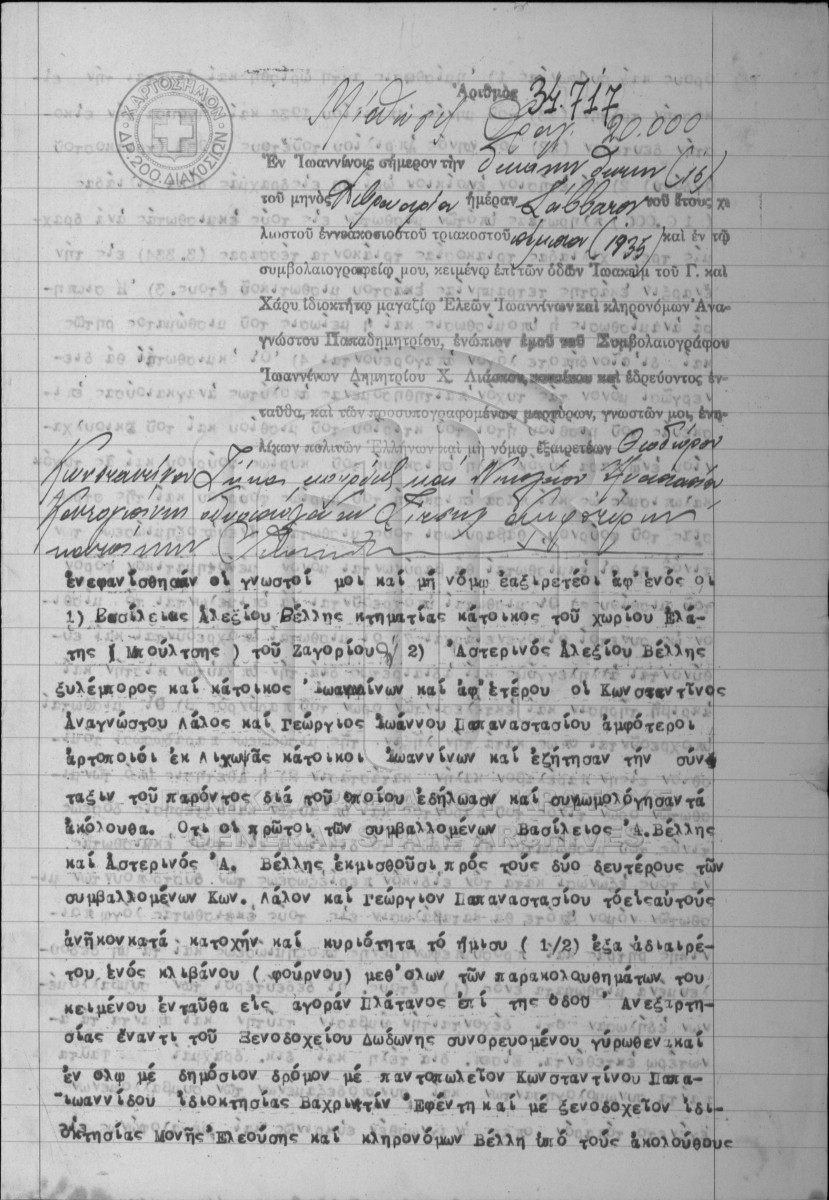 ΧΑΡΤΟΣΗΜΟΝ
ΔΡ. 200. ΔΙΑΚΟΣΙΩΝ
Ἀριθμὸς 34.717
Δραχ. 20.000
Ἐν Ἰωαννίνοις σήμερον τὴν δεκάτην (16)
τοῦ μηνὸς Φεβρουαρίου ἡμέραν Σάββατον τοῦ ἔτους χι
λιοστοῦ ἐννεακοσιοστοῦ τριακοστοῦ πέμπτου (1935) καὶ ἐν τῷ
συμβολαιογραφείῳ μου, κειμένῳ ἐπὶ τῶν ὁδῶν Ἰωακεὶμ τοῦ Γ. καὶ
Χάρυ ἰδιοκτήτῳ μαγαζίῳ Ἐλεῶν Ἰωαννίνων καὶ κληρονόμων Ἀνα-
γνώστου Παπαδημητρίου, ἐνώπιον ἐμοῦ τοῦ Συμβολαιογράφου
Ἰωαννίνων Δημητρίου Χ. Λιάσκου, κατοίκου καὶ ἑδρεύοντος ἐν-
ταῦθα, καὶ τῶν προσυπογραφομένων μαρτύρων, γνωστῶν μοι, ἐνη-
λίκων πολιτῶν Ἑλλήνων καὶ μὴ νόμῳ ἐξαιρετέων Θεοδώρου
Κωνσταντίνου καὶ Νικολάου
κατοίκων
ἐνεφανίσθησαν οἱ γνωστοί μοι καί μή νόμω εαξιρετέοι ἀφ'ἑνός οι
1) Βασίλειας Ἀλεξίου Βέλλης κτηματίας κάτοικος τοῦ χωρίου Ελά-
της ( Μπούλτσης ) τοῦ Ζαγορίου 2) Ἀστερινός Ἀλεξίου Βέλλης
ξυλέμπορος καί κάτοικος Ἰωαννίνων καί ἀφ'ετέρου οἱ Κωνσταντῖνος
Ἀναγνώστου Λάλος καί Γεώργιος Ἰωάννου Παπαναστασίου ἀμφότεροι
ἀρτοποιόι ἐκ Λιχωψᾶς κάτοικοι Ἰωαννίνων καί εζήτησαν τήν σύν-
ταξιν τοῦ παρόντος διά τοῦ ὁποίου ἐδήλωσαν καί συνωμολόγησαν τά
ἀκόλουθα. Οτι οἱ πρῶτοι τῶν συμβαλλομένων Βασίλειος Ἀ. Βέλλης
καί Ἀστερινός Ἀ. Βέλλης ἐκμισθοῦσι πρός τούς δύο δευτέρους τῶν
συμβαλλομένων Κων. Λάλον καί Γεώργιον Παπαναστασίου τόεἰςαὐτούς
ἀνῆκονκατά κατοχήν καί κυριότητα τό ἥμισυ ( 1/2) ἐξα ἀδιαιρέ-
του ἑνός κλιβάνου ( φούρνου) μεθ'ολων τῶν παρακολουθημάτων του
κειμένου ἐνταῦθα εἰς ἀγοράν Πλάτανος ἐπί της ὁδοῦ Ἀνεξαρτη-
σίας ἔναντι τοῦ Ξενοδοχείου Δωδωνης συνορευομένου γύρωθεν καί
ἐν ολῳ μέ δημόσιον δρόμον μέ παντοπωλεῖον Κωνσταντίνου Παπα-
-ιωαννίδου ἰδιοκτησίας Βαχριντίν Ἐφέντη καί μέ ξενοδοχεῖον ἰδι-
οκτησίας Μονῆς Ἐλεούσης καί κληρονόμων Βέλλη ὑπό τούς ἀκολούθους
GENERAL STATE ARCHIVES